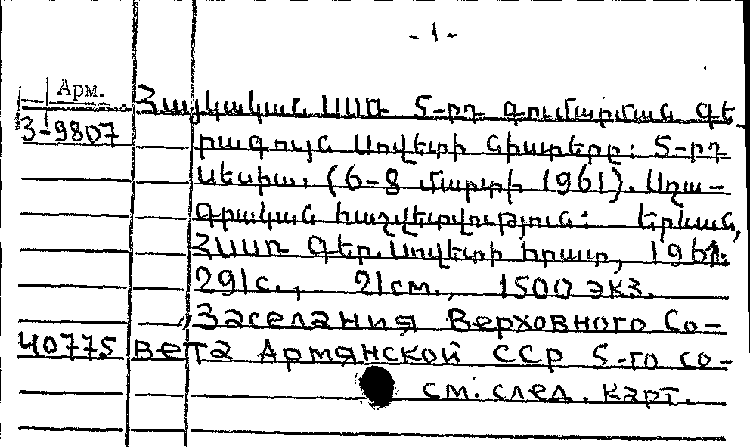 - 1 -
Арм.
Հայկական ՍՍՌ 5-րդ գումարման Գե-
3-9807
րագույն Սովետի նիստերը: 5-րդ
սեսիա. (6-8 մարտի 1961). Սղա-
գրական հաշվետվություն: Երևան,
ՀՍՍՌ Գեր. Սովետի հրատ, 1961.
291с., 21см., 1500 экз.
Заседания Верховного Со-
40775
вета Армянской ССР 5-го со-
см. след. карт.